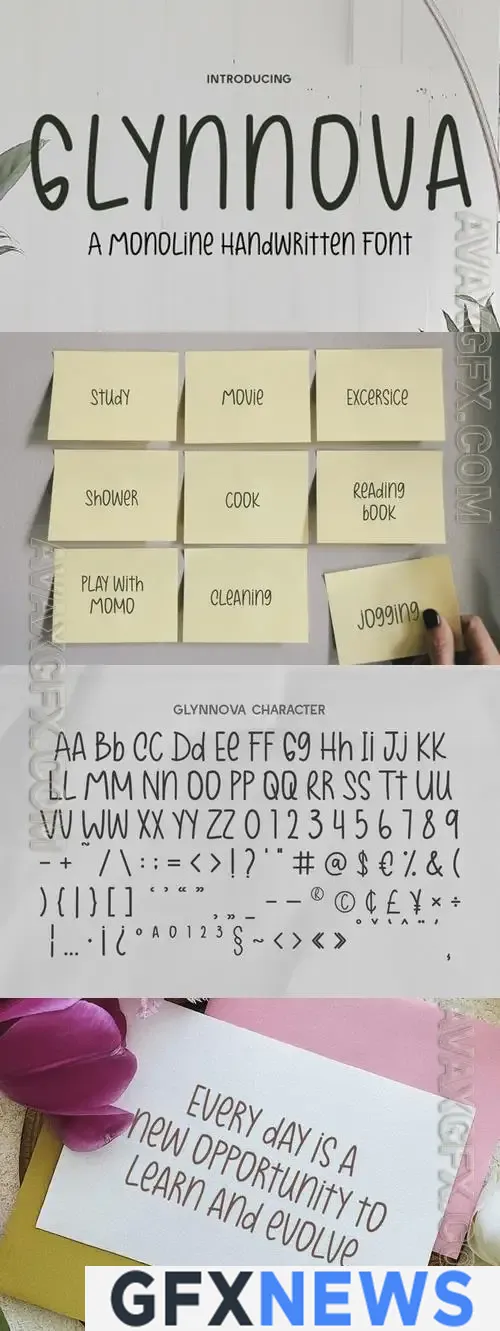 INTRODUCING
GLYNNOVA
A MONOLINE HANDWRITTEN FONT
AVAXGFX.COM
STUDY
MOVIE
EXCERSICE
SHOWER
COOK
READING
BOOK
PLAY WITH
MOMO
CLEANING
JOGGING
AVAXGFX.COM
GLYNNOVA CHARACTER
AA Bb CC Dd EE FF Gg Hh Ii Jj KK
LL MM NN OO PP QQ RR SS Tt UU
VV WW XX YY ZZ 0 1 2 3 4 5 6 7 8 9
- + ~ / \ : ; = < > ! ? ' " # @ $ € % & (
) { | } [ ] ‘ ’ “ ” ‚ „ _ – — ® © ¢ £ ¥ × ÷
¦ … · ¡ ¿ º ª 0 1 2 3 § ~ ‹ › « »
EVERY DAY IS A
NEW OPPORTUNITY TO
LEARN AND EVOLVE
AVAXGFX.CO
GFXNEWS